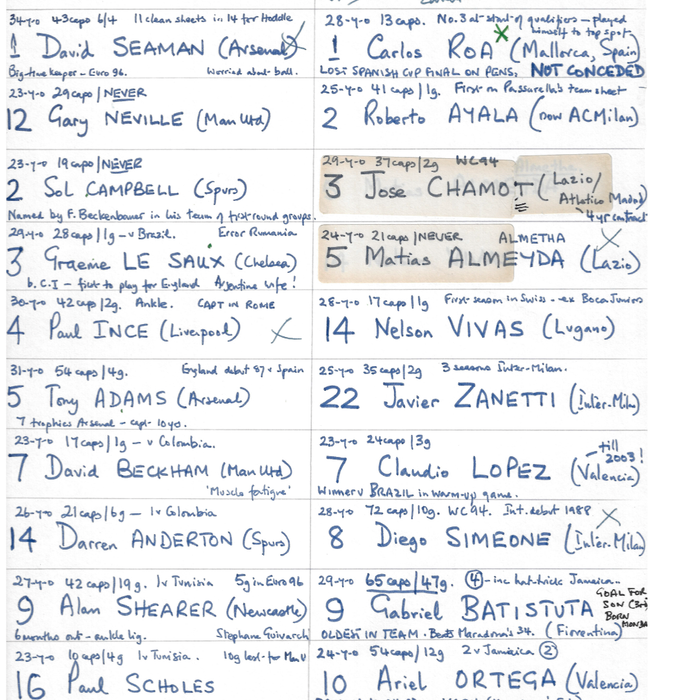 34-y-o 43caps 6/4 11 clean sheets in 14 for Hoddle
1 David SEAMAN (Arsenal)
Big-time keeper - Euro 96. Worried about ball.
23-y-o 29caps/NEVER
12 Gary NEVILLE (Man Utd)
23-y-o 19caps/NEVER
2 Sol CAMPBELL (Spurs)
Named by F. Beckenbauer in his team of first round groups.
29-y-o 28caps/1g - v Brazil. Error Rumania
3 Graeme LE SAUX (Chelsea)
b. C.I - first to play for England Argentine wife!
30-y-o 42caps/2g. Ankle. CAPT IN ROME
4 Paul INCE (Liverpool)
31-y-o 54caps/4g. England debut 87 v Spain
5 Tony ADAMS (Arsenal)
7 trophies Arsenal - capt- 10yo.
23-y-o 17caps/1g - v Colombia.
7 David BECKHAM (Man Utd)
'Muscle fatigue'
26-y-o 21caps/6g - 1v Colombia
14 Darren ANDERTON (Spurs)
27-y-o 42caps/19g. 1v Tunisia 5g in Euro 96
9 Alan SHEARER (Newcastle)
6 months out - ankle lig. Stephane Guivarch
23-y-o 10caps/4g 1v Tunisia. 10g last for Man U
16 Paul SCHOLES
28-y-o 13caps. No.3 at start of qualifiers - played himself to top spot
1 Carlos ROA (Mallorca, Spain)
LOST SPANISH CUP FINAL ON PENS, NOT CONCEDED
25-y-o 41 caps/1g. First on Passarella's team sheet
2 Roberto AYALA (now AC Milan)
29-y-o 37caps/2g WC94
3 Jose CHAMOT (Lazio/
Atletico Madrid)
4 yr contract
24-y-o 21caps/NEVER ALMETHA
5 Matias ALMEYDA (Lazio)
28-y-o 17caps/1g First season in Swiss - ex Boca Juniors
14 Nelson VIVAS (Lugano)
25-y-o 35caps/2g 3 seasons Inter-Milan.
22 Javier ZANETTI (Inter-Milan)
23-y-o 24caps/3g
till 2003!
7 Claudio LOPEZ (Valencia)
Winner v BRAZIL in warm-up game.
28-y-o 72caps/10g. WC94. Int. debut 1988
8 Diego SIMEONE (Inter-Milan)
29-y-o 65caps/47g. 4 - inc hat-trick Jamaica..
9 Gabriel BATISTUTA
GOAL FOR SON (3rd) BORN
OLDEST IN TEAM - Beats Maradona's 34. (Fiorentina)
24-y-o 54caps/12g 2v Jamaica 2
10 Ariel ORTEGA (Valencia)